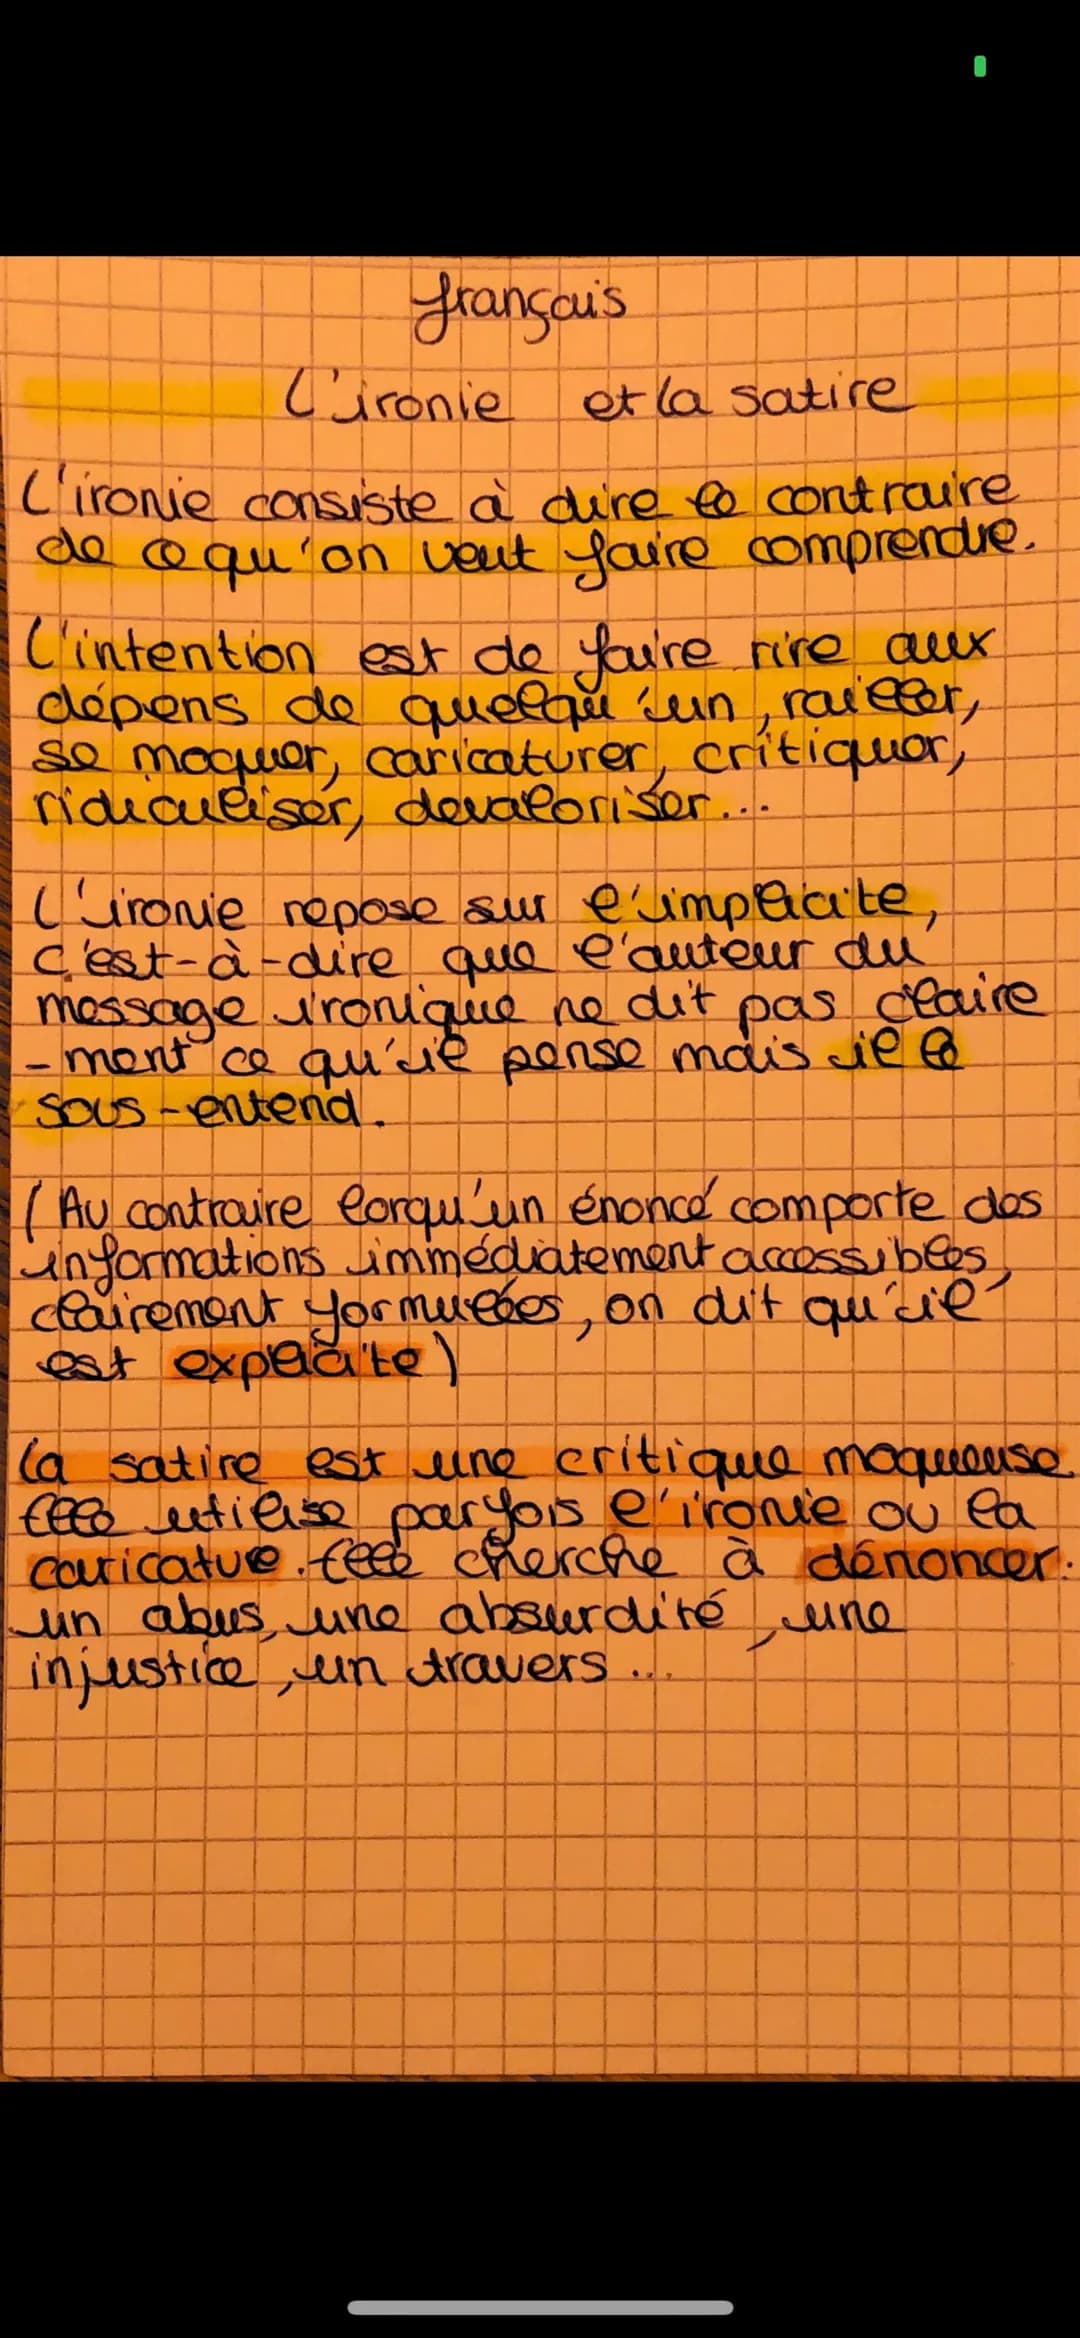 français
L'ironie et la satire
L'ironie consiste à dire le contraire
de ce qu'on veut faire comprendre.
L'intention est de faire rire aux
dépens de quelqu'un, railler,
se moquer, caricaturer, critiquer,
ridiculiser, devaloriser...
L'ironie repose sur l'implicite,
c'est-à-dire que l'auteur du
message ironique ne dit pas claire
-ment ce qu'il pense mais il le
sous-entend.
(Au contraire lorqu'un énoncé comporte des
informations immédiatement accessibles,
clairement formulées, on dit qu'il
est explicite)
La satire est une critique moqueuse.
Elle utilise parfois l'ironie ou la
caricature. Elle cherche à dénoncer:
un abus, une absurdité, une
injustice, un travers...